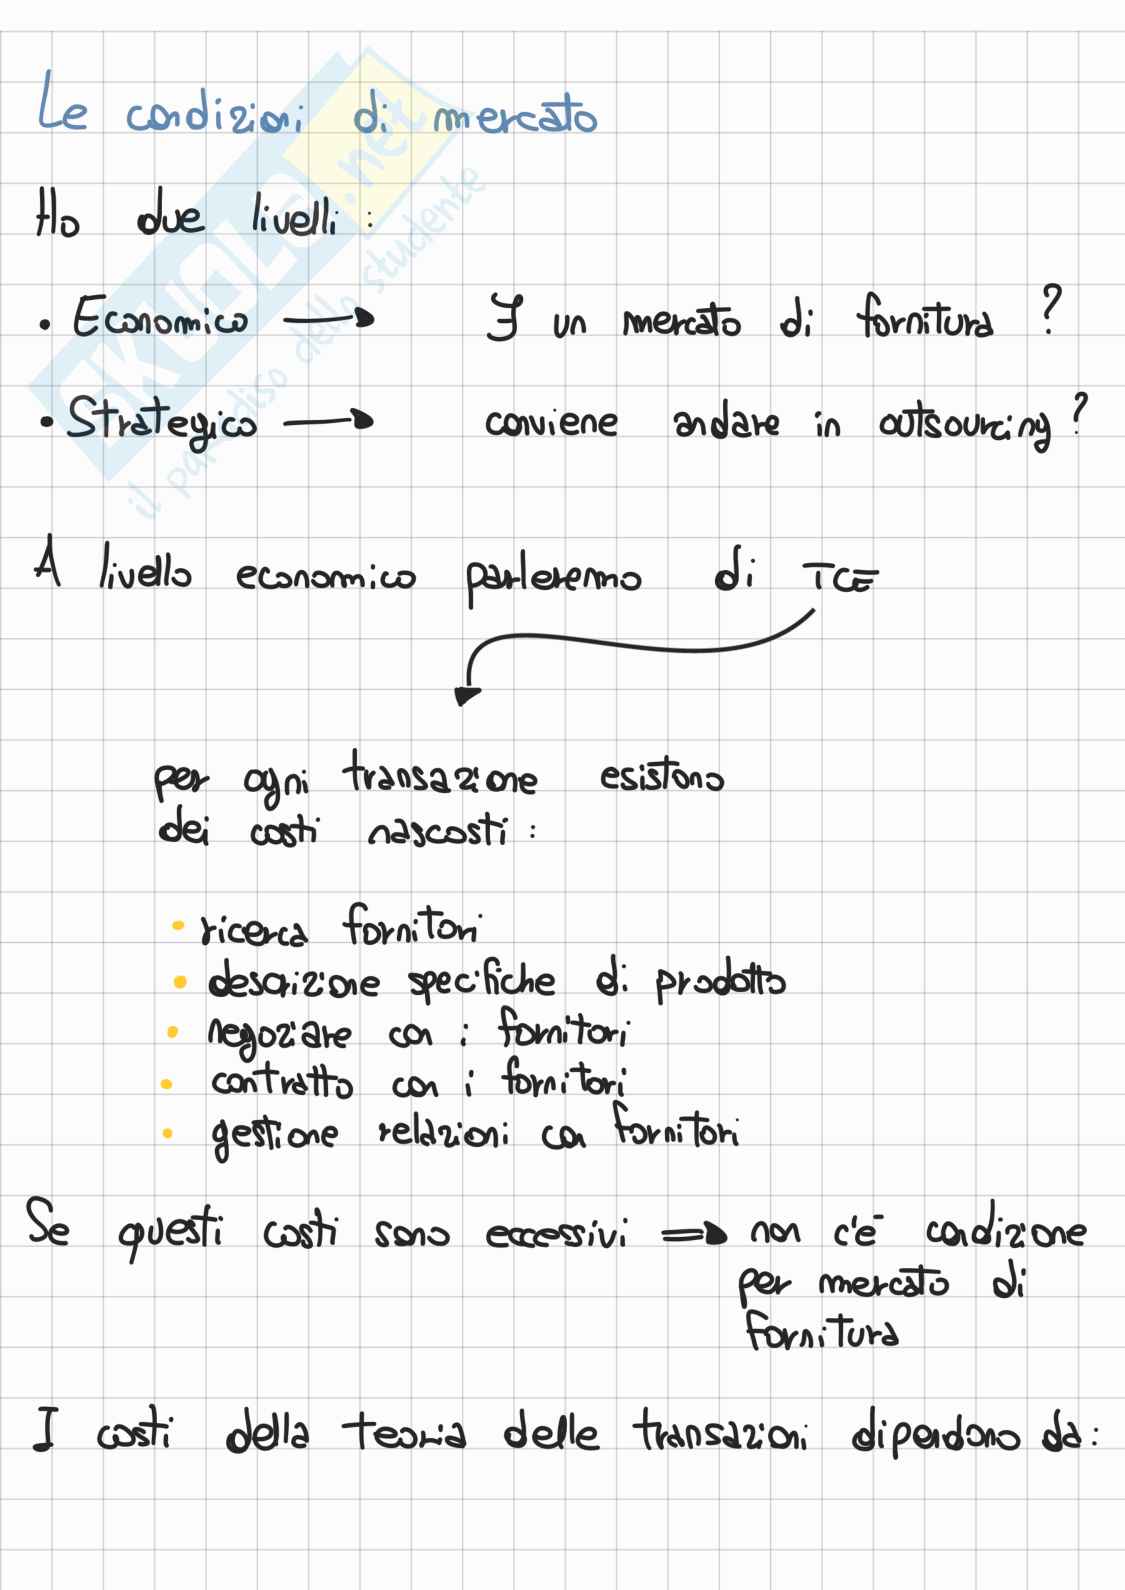 Le condizioni di mercato
Ho due livelli:
• Economico → ∃ un mercato di fornitura?
• Strategico → conviene andare in outsourcing?
A livello economico parleremo di TCE
per ogni transazione esistono
dei costi nascosti:
• ricerca fornitori
• descrizione specifiche di prodotto
• negoziare con i fornitori
• contratto con i fornitori
• gestione relazioni con fornitori
Se questi costi sono eccessivi ⇒ non c'è condizione
per mercato di
fornitura
I costi della teoria delle transazioni dipendono da:
SKUOLA.net
il paradiso dello studente